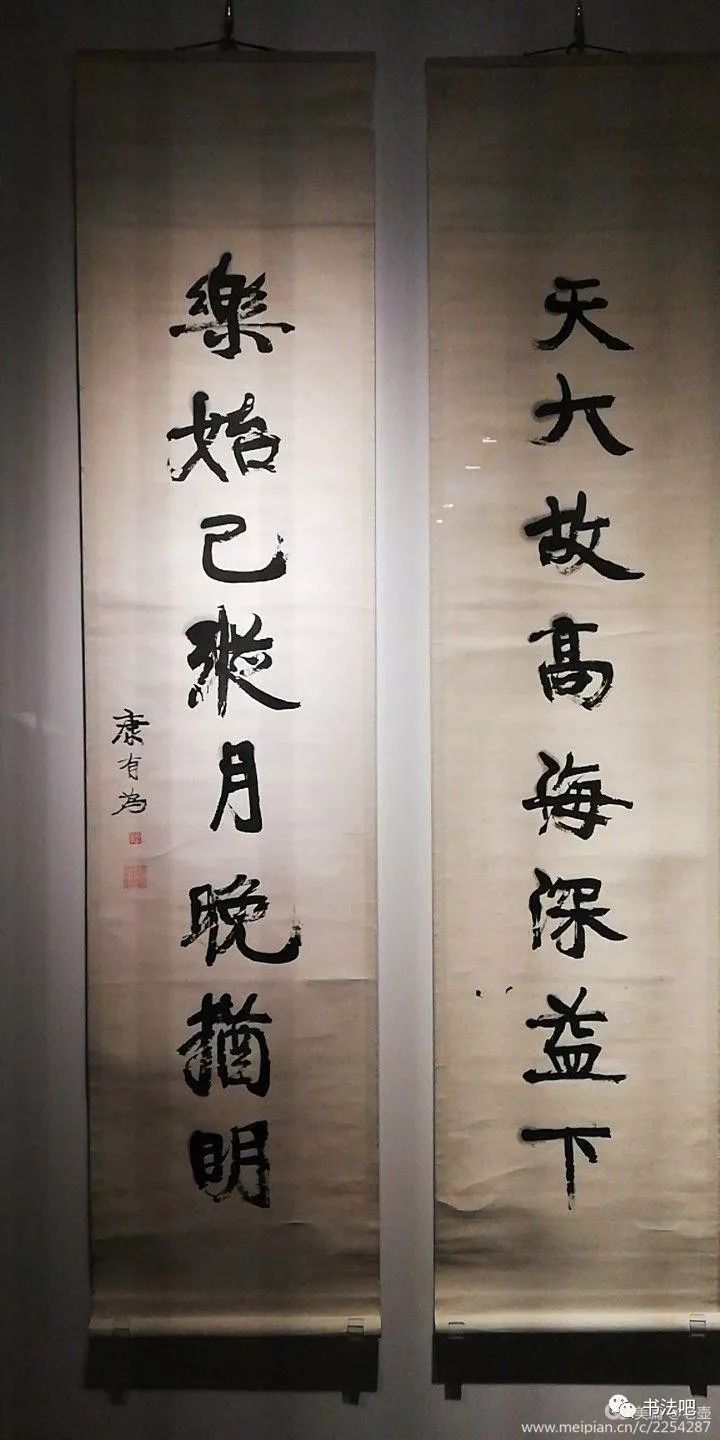 天大故高海深益下
樂始已縱月晚猶明
康有為
书法吧
www.meipian.cn/c/2254287